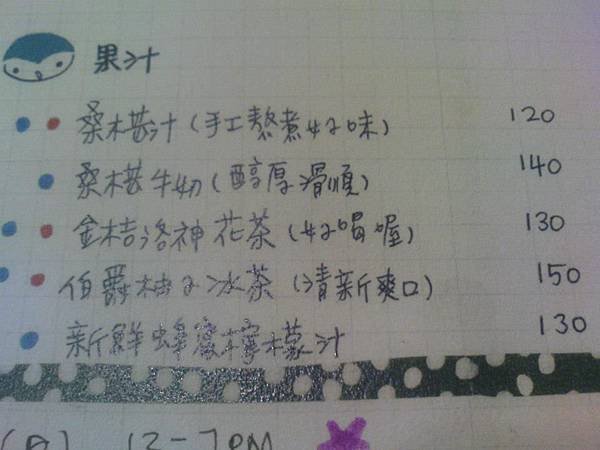 果汁
桑椹汁(手工熬煮好味) 120
桑椹牛奶(醇厚滑順) 140
金桔洛神花茶(好喝喔) 130
伯爵柚子冰茶(清新爽口) 150
新鮮蜂蜜檸檬汁 130
12-7PM